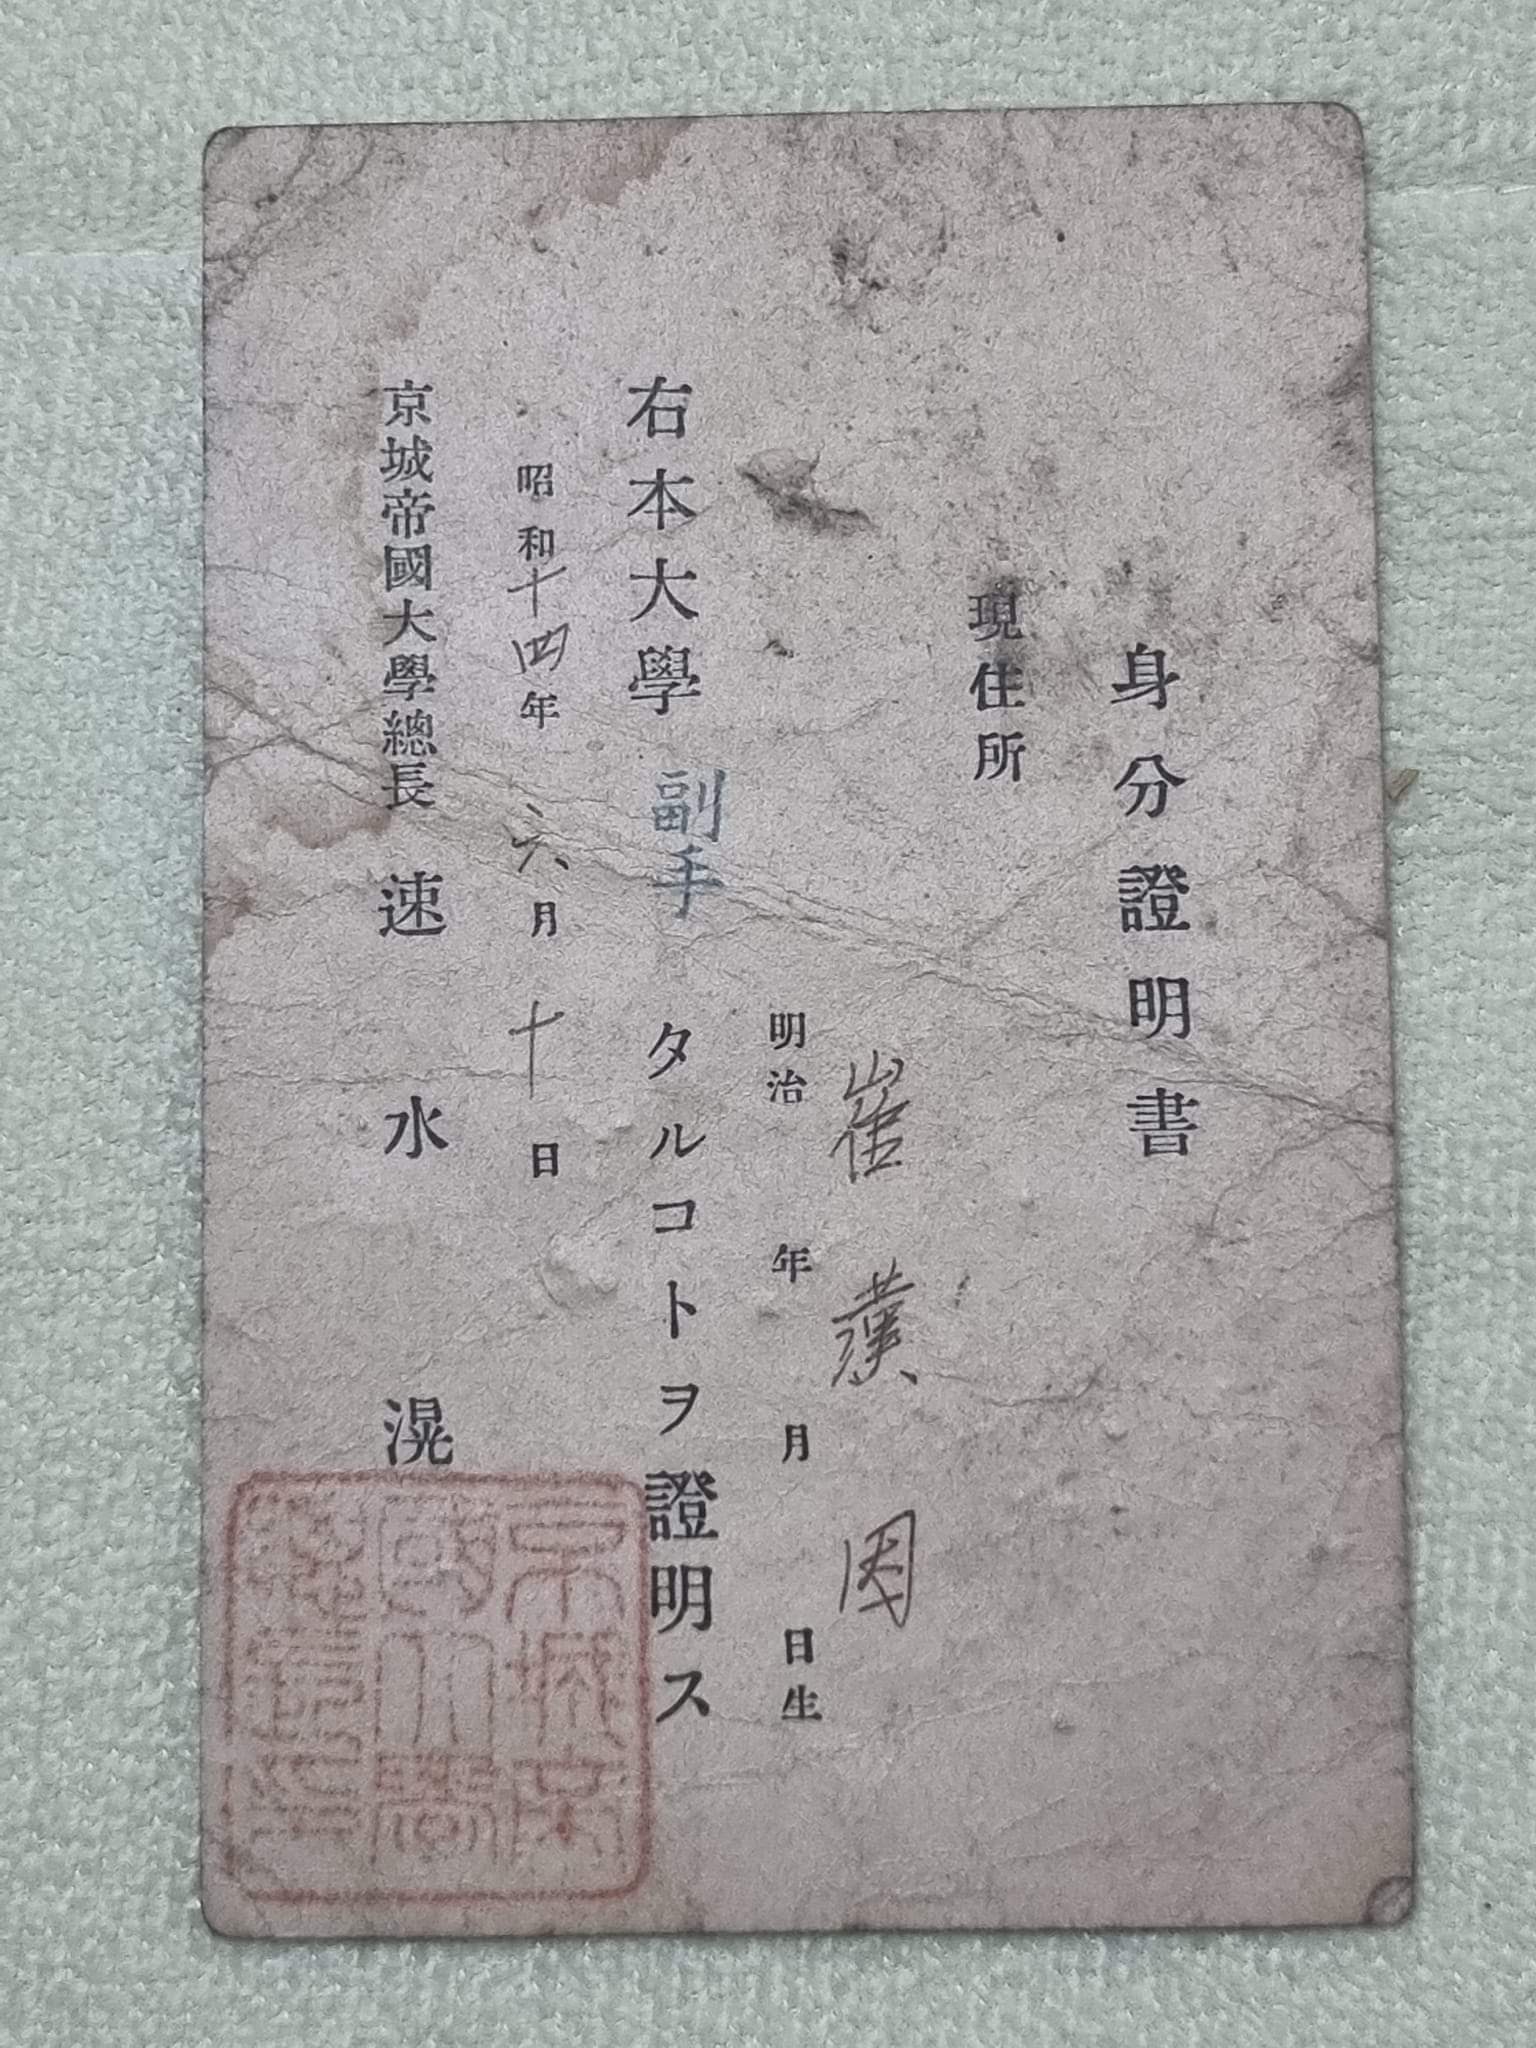 身分證明書
現住所
崔漢因
明治　年　月　日生
右本大學副手タルコトヲ證明ス
昭和十四年六月十日
京城帝國大學總長　速水滉
京城帝
國大學
總長印